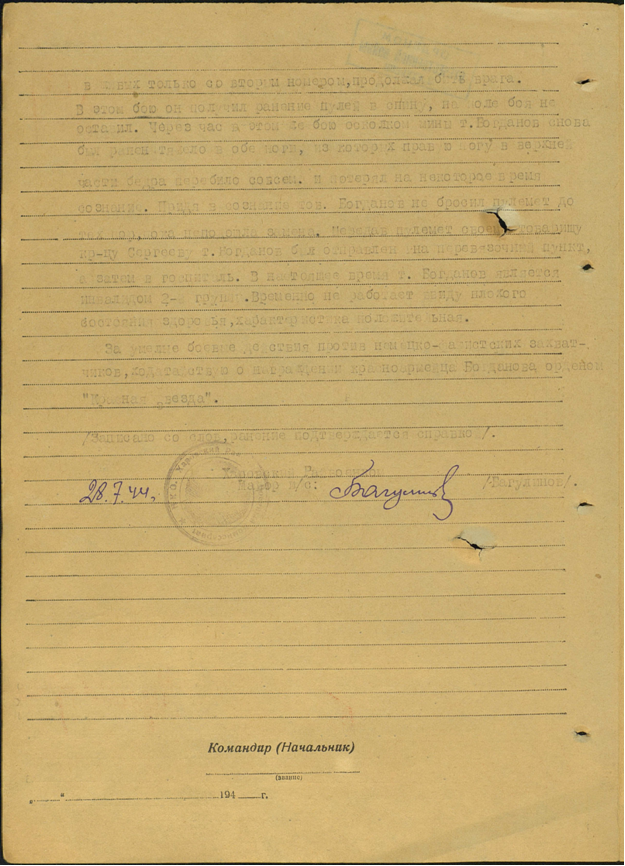 в живых только со вторым номером,продолжал бить врага.
В этом бою он получил ранение пулей в спину, но поле боя не
оставил. Через час в этом же бою осколком мины т.Богданов снова
был ранен тяжело в обе ноги, из которых правую ногу в верхней
части бедра перебило совсем. и потерял на некоторое время
сознание. Придя в сознание тов. Богданов не бросил пулемет до
тех пор,пока не пришла замена. Передав пулемет своему товарищу
кр-цу Сергееву т.Богданов был отправлен на перевязочный пункт,
а затем в госпиталь. В настоящее время т. Богданов является
инвалидом 2-й группы.Временно не работает ввиду плохого
состояния здоровья,характеристика положительная.
За умелые боевые действия против немецко- захват-
чиков,ходатайствую о награждении красноармейца Богданова орденом
"Красная звезда".
/Записано со слов,ранение подтверждается справкой/.
Райвоенком
28.7.44г. Майор и/с: /Багулинов/.
Командир (Начальник)
(звание)
" " 194 г.